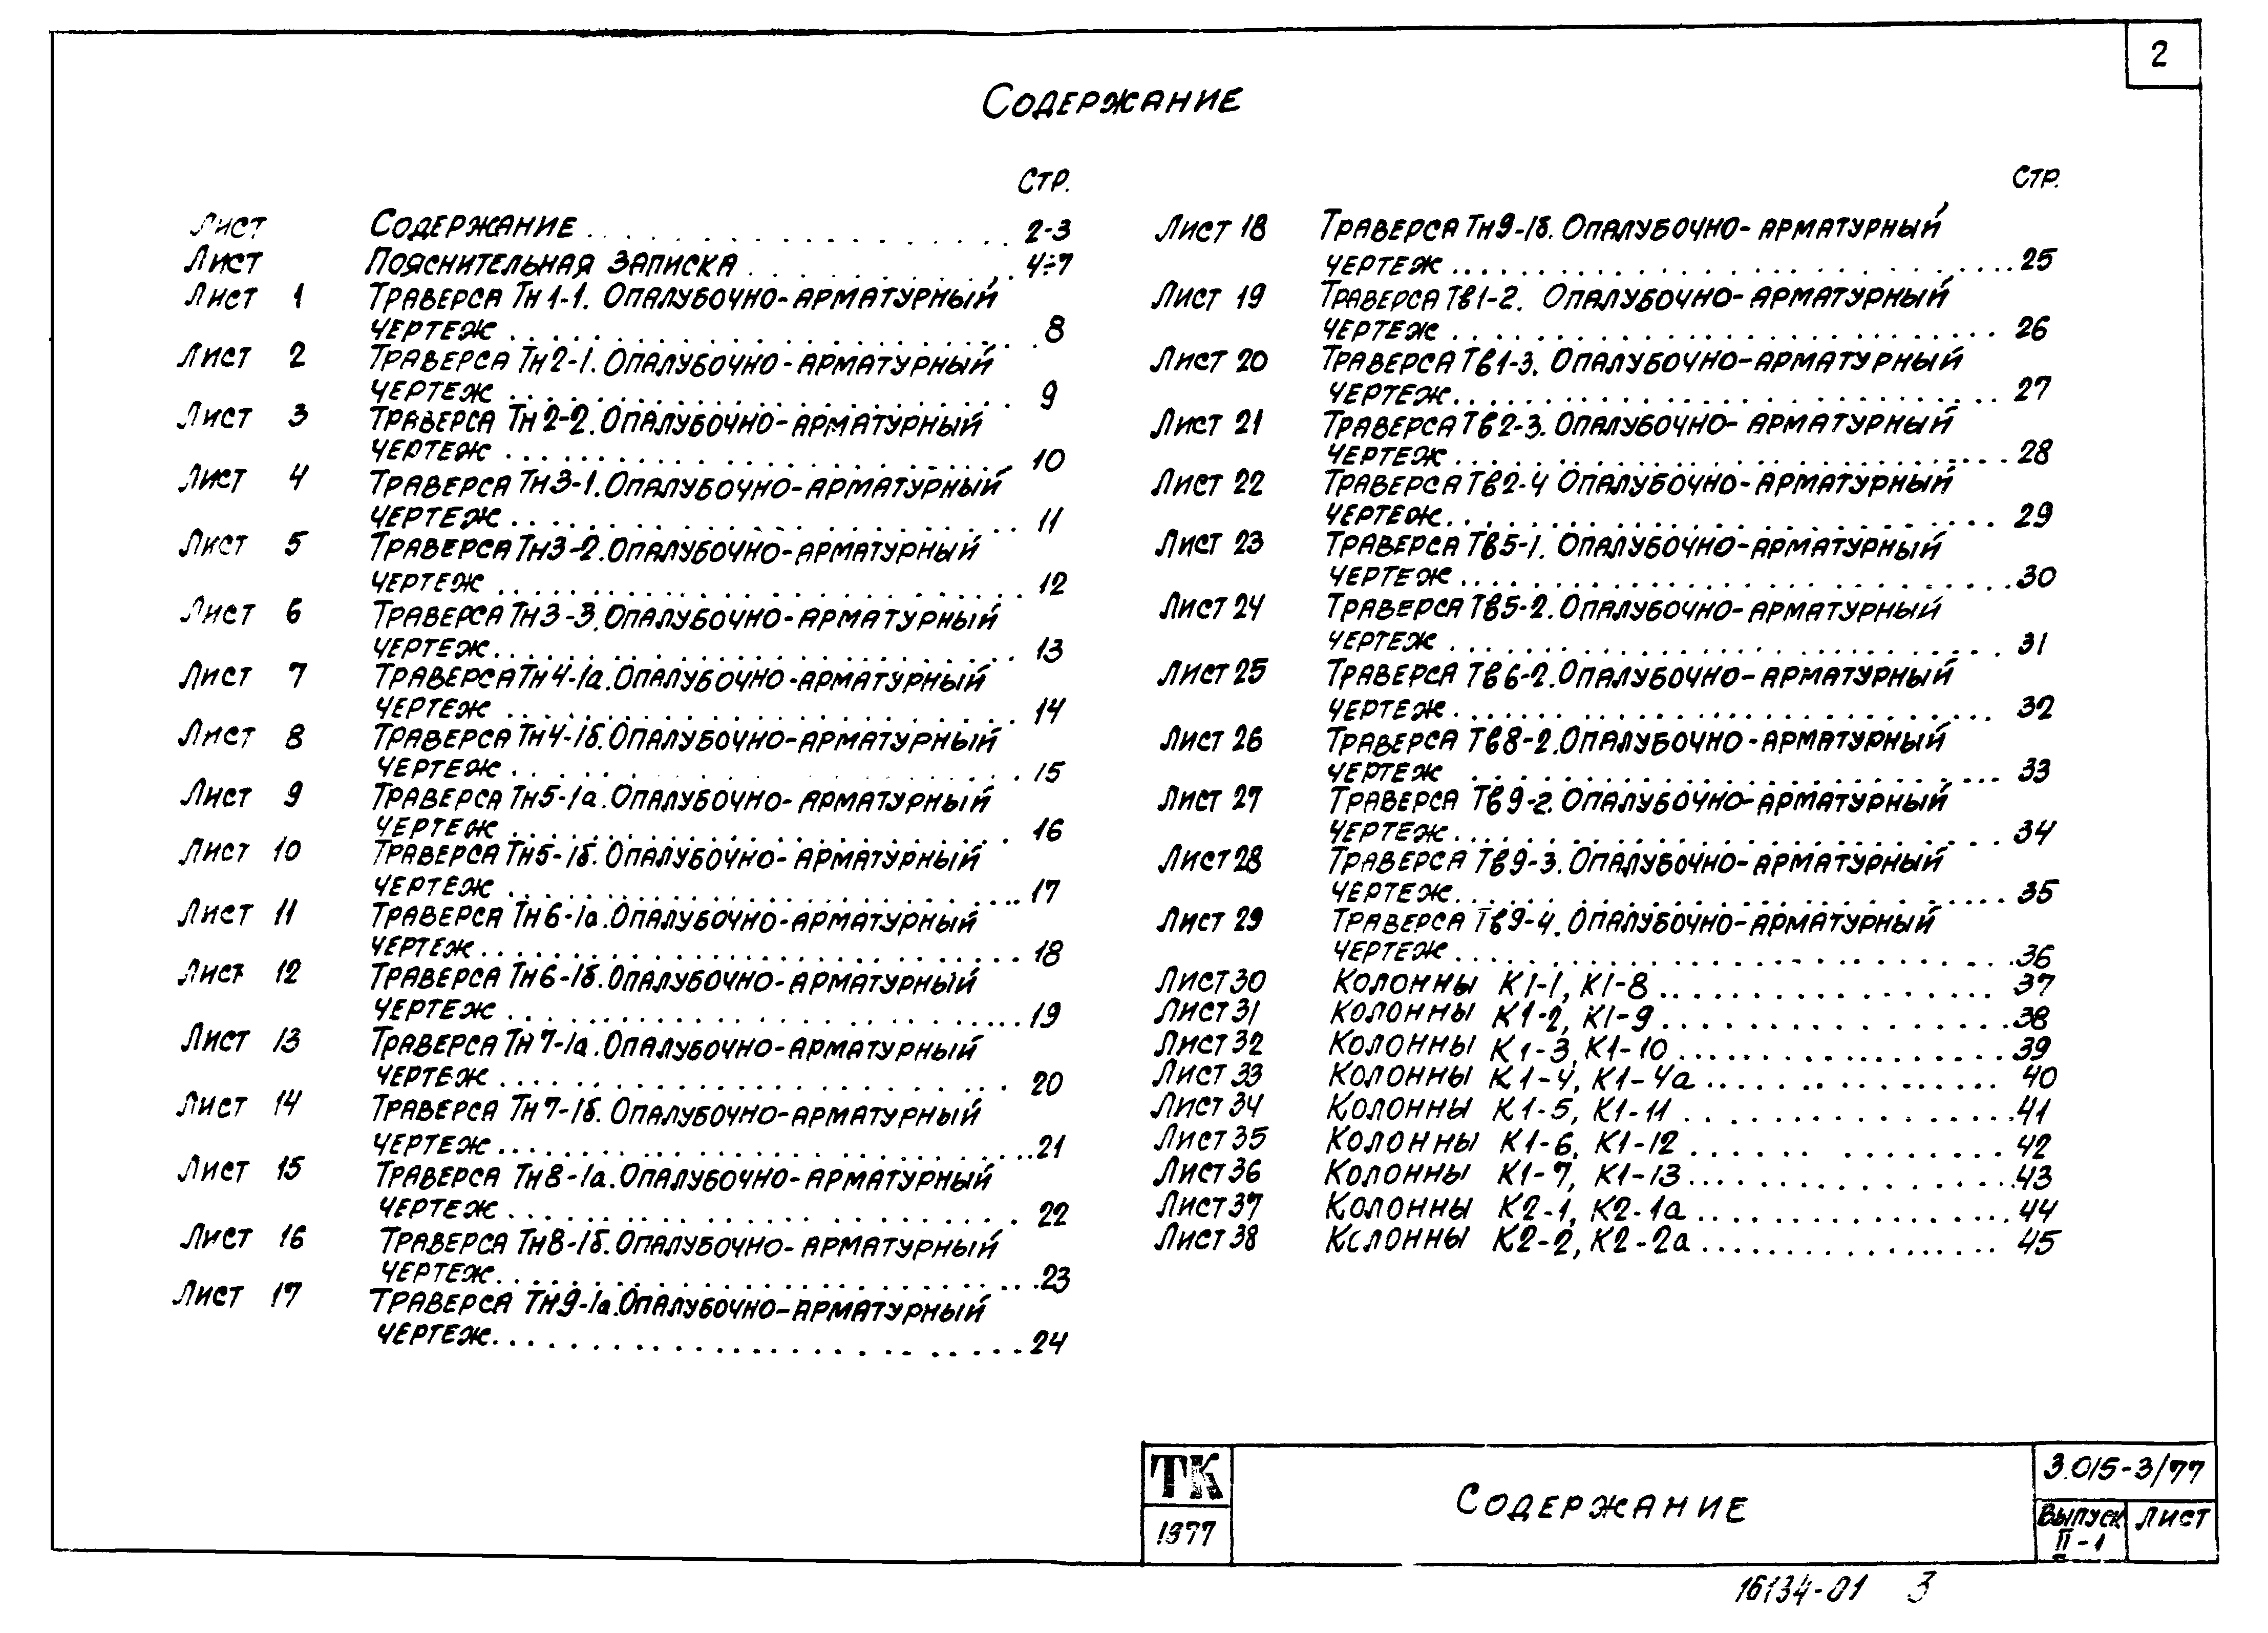 2
Содержание
Стр.
Лист Содержание . . . . . . . . . . 2-3
Лист Пояснительная записка . . . . . . . . . . 4÷7
Лист 1 Траверса Тн1-1. Опалубочно-арматурный
чертеж . . . . . . . . . . 8
Лист 2 Траверса Тн2-1. Опалубочно-арматурный
чертеж . . . . . . . . . . 9
Лист 3 Траверса Тн2-2. Опалубочно-арматурный
чертеж . . . . . . . . . . 10
Лист 4 Траверса Тн3-1. Опалубочно-арматурный
чертеж . . . . . . . . . . 11
Лист 5 Траверса Тн3-2. Опалубочно-арматурный
чертеж . . . . . . . . . . 12
Лист 6 Траверса Тн3-3. Опалубочно-арматурный
чертеж . . . . . . . . . . 13
Лист 7 Траверса Тн4-1а. Опалубочно-арматурный
чертеж . . . . . . . . . . 14
Лист 8 Траверса Тн4-1б. Опалубочно-арматурный
чертеж . . . . . . . . . . 15
Лист 9 Траверса Тн5-1а. Опалубочно-арматурный
чертеж . . . . . . . . . . 16
Лист 10 Траверса Тн5-1б. Опалубочно-арматурный
чертеж . . . . . . . . . . 17
Лист 11 Траверса Тн6-1а. Опалубочно-арматурный
чертеж . . . . . . . . . . 18
Лист 12 Траверса Тн6-1б. Опалубочно-арматурный
чертеж . . . . . . . . . . 19
Лист 13 Траверса Тн7-1а. Опалубочно-арматурный
чертеж . . . . . . . . . . 20
Лист 14 Траверса Тн7-1б. Опалубочно-арматурный
чертеж . . . . . . . . . . 21
Лист 15 Траверса Тн8-1а. Опалубочно-арматурный
чертеж . . . . . . . . . . 22
Лист 16 Траверса Тн8-1б. Опалубочно-арматурный
чертеж . . . . . . . . . . 23
Лист 17 Траверса Тн9-1а. Опалубочно-арматурный
чертеж . . . . . . . . . . 24
Стр.
Лист 18 Траверса Тн9-1б. Опалубочно-арматурный
чертеж . . . . . . . . . . 25
Лист 19 Траверса Тв1-2. Опалубочно-арматурный
чертеж . . . . . . . . . . 26
Лист 20 Траверса Тв1-3. Опалубочно-арматурный
чертеж . . . . . . . . . . 27
Лист 21 Траверса Тв2-3. Опалубочно-арматурный
чертеж . . . . . . . . . . 28
Лист 22 Траверса Тв2-4 Опалубочно-арматурный
чертеж . . . . . . . . . . 29
Лист 23 Траверса Тв5-1. Опалубочно-арматурный
чертеж . . . . . . . . . . 30
Лист 24 Траверса Тв5-2. Опалубочно-арматурный
чертеж . . . . . . . . . . 31
Лист 25 Траверса Тв6-2. Опалубочно-арматурный
чертеж . . . . . . . . . . 32
Лист 26 Траверса Тв8-2. Опалубочно-арматурный
чертеж . . . . . . . . . . 33
Лист 27 Траверса Тв9-2. Опалубочно-арматурный
чертеж . . . . . . . . . . 34
Лист 28 Траверса Тв9-3. Опалубочно-арматурный
чертеж . . . . . . . . . . 35
Лист 29 Траверса Тв9-4. Опалубочно-арматурный
чертеж . . . . . . . . . . 36
Лист 30 Колонны К1-1, К1-8 . . . . . . . . . . 37
Лист 31 Колонны К1-2, К1-9 . . . . . . . . . . 38
Лист 32 Колонны К1-3, К1-10 . . . . . . . . . . 39
Лист 33 Колонны К1-4, К1-4а . . . . . . . . . . 40
Лист 34 Колонны К1-5, К1-11 . . . . . . . . . . 41
Лист 35 Колонны К1-6, К1-12 . . . . . . . . . . 42
Лист 36 Колонны К1-7, К1-13 . . . . . . . . . . 43
Лист 37 Колонны К2-1, К2-1а . . . . . . . . . . 44
Лист 38 Колонны К2-2, К2-2а . . . . . . . . . . 45
ТК
1977
Содержание
3.015-3/77
Выпуск
II-1
Лист
16134-01 3